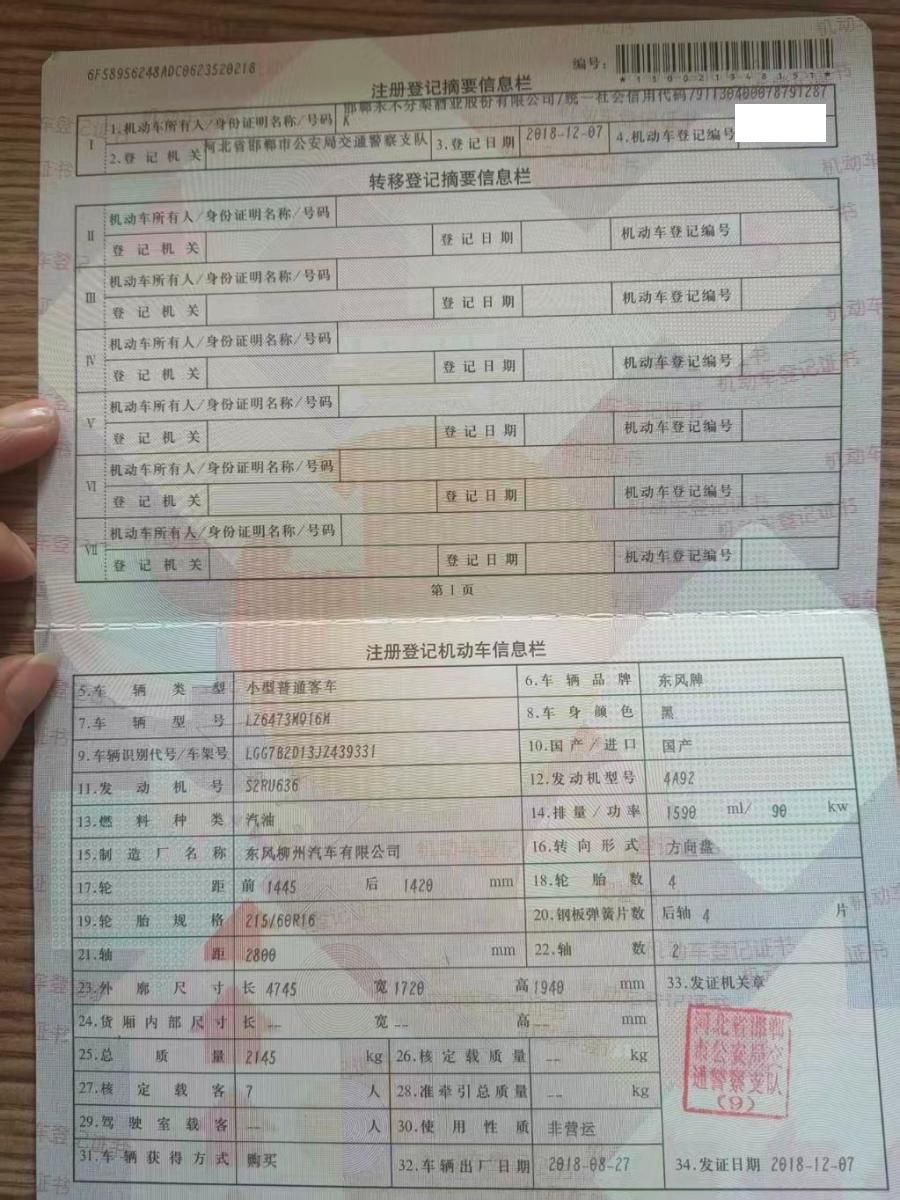 6F58956248ADC0623520218
编号:
*150021348191*
注册登记摘要信息栏
I 1.机动车所有人/身份证明名称/号码 邯郸永不分梨酒业股份有限公司/统一社会信用代码/91130400078791287
K
2.登记机关 河北省邯郸市公安局交通警察支队 3.登记日期 2018-12-07 4.机动车登记编号
转移登记摘要信息栏
II 机动车所有人/身份证明名称/号码
登记机关 登记日期 机动车登记编号
III 机动车所有人/身份证明名称/号码
登记机关 登记日期 机动车登记编号
IV 机动车所有人/身份证明名称/号码
登记机关 登记日期 机动车登记编号
V 机动车所有人/身份证明名称/号码
登记机关 登记日期 机动车登记编号
VI 机动车所有人/身份证明名称/号码
登记机关 登记日期 机动车登记编号
VII 机动车所有人/身份证明名称/号码
登记机关 登记日期 机动车登记编号
第1页
注册登记机动车信息栏
5.车辆类型 小型普通客车 6.车辆品牌 东风牌
7.车辆型号 LZ6473MQ16M 8.车身颜色 黑
9.车辆识别代号/车架号 LGG7B2D13JZ439331 10.国产/进口 国产
11.发动机号 S2RU636 12.发动机型号 4A92
13.燃料种类 汽油 14.排量/功率 1590 ml/ 90 kw
15.制造厂名称 东风柳州汽车有限公司 16.转向形式 方向盘
17.轮距 前 1445 后 1420 mm 18.轮胎数 4
19.轮胎规格 215/60R16 20.钢板弹簧片数 后轴 4 片
21.轴距 2800 mm 22.轴数 2
23.外廓尺寸 长 4745 宽 1720 高 1940 mm 33.发证机关章
24.货厢内部尺寸 长 -- 宽 -- 高 -- mm
25.总质量 2145 kg 26.核定载质量 -- kg
27.核定载客 7 人 28.准牵引总质量 -- kg
29.驾驶室载客 -- 人 30.使用性质 非营运
31.车辆获得方式 购买 32.车辆出厂日期 2018-08-27 34.发证日期 2018-12-07
河北省邯郸
市公安局交
通警察支队
(9)